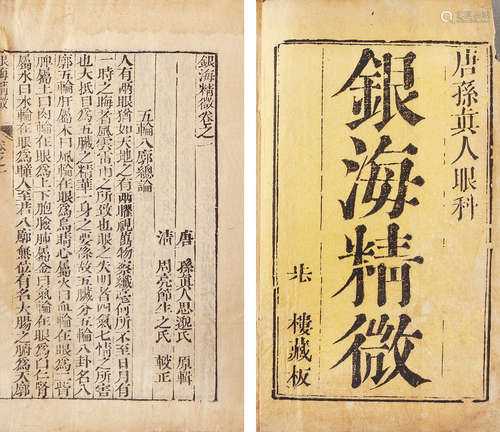 唐孫眞人眼科
銀海精微
樓藏板
銀海精微卷之一
唐 孫眞人思邈氏 原輯
清 周亮節生之氏 較正
五輪八廓總論
人有兩眼猶如天地之有兩曜視萬物察纖毫何所不至日月有
一時之晦者風雲雷雨之所致也眼之失明者四氣七情之所害
也大抵目爲五臟之精華一身之要係故五臟分五輪八卦名八
廓五輪肝屬木曰風輪在眼爲烏睛心屬火曰血輪在眼爲二眥
脾屬土曰肉輪在眼爲上下胞瞼肺屬金曰氣輪在眼爲白仁腎
屬水曰水輪在眼爲瞳人至若八廓無位有名大腸之腑爲天廓
銀海精微
卷之一